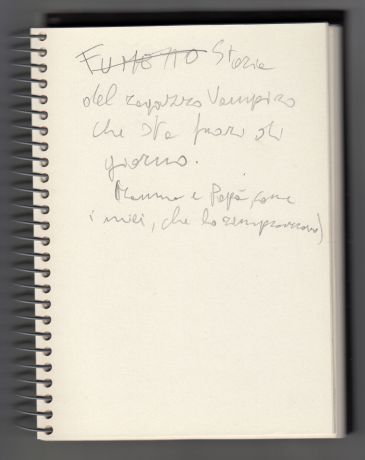 FUMETTO Storia
del ragazzo Vampiro
che sta fuori di
giorno.
Mamma e Papà come
i miei, che lo rimproverano)